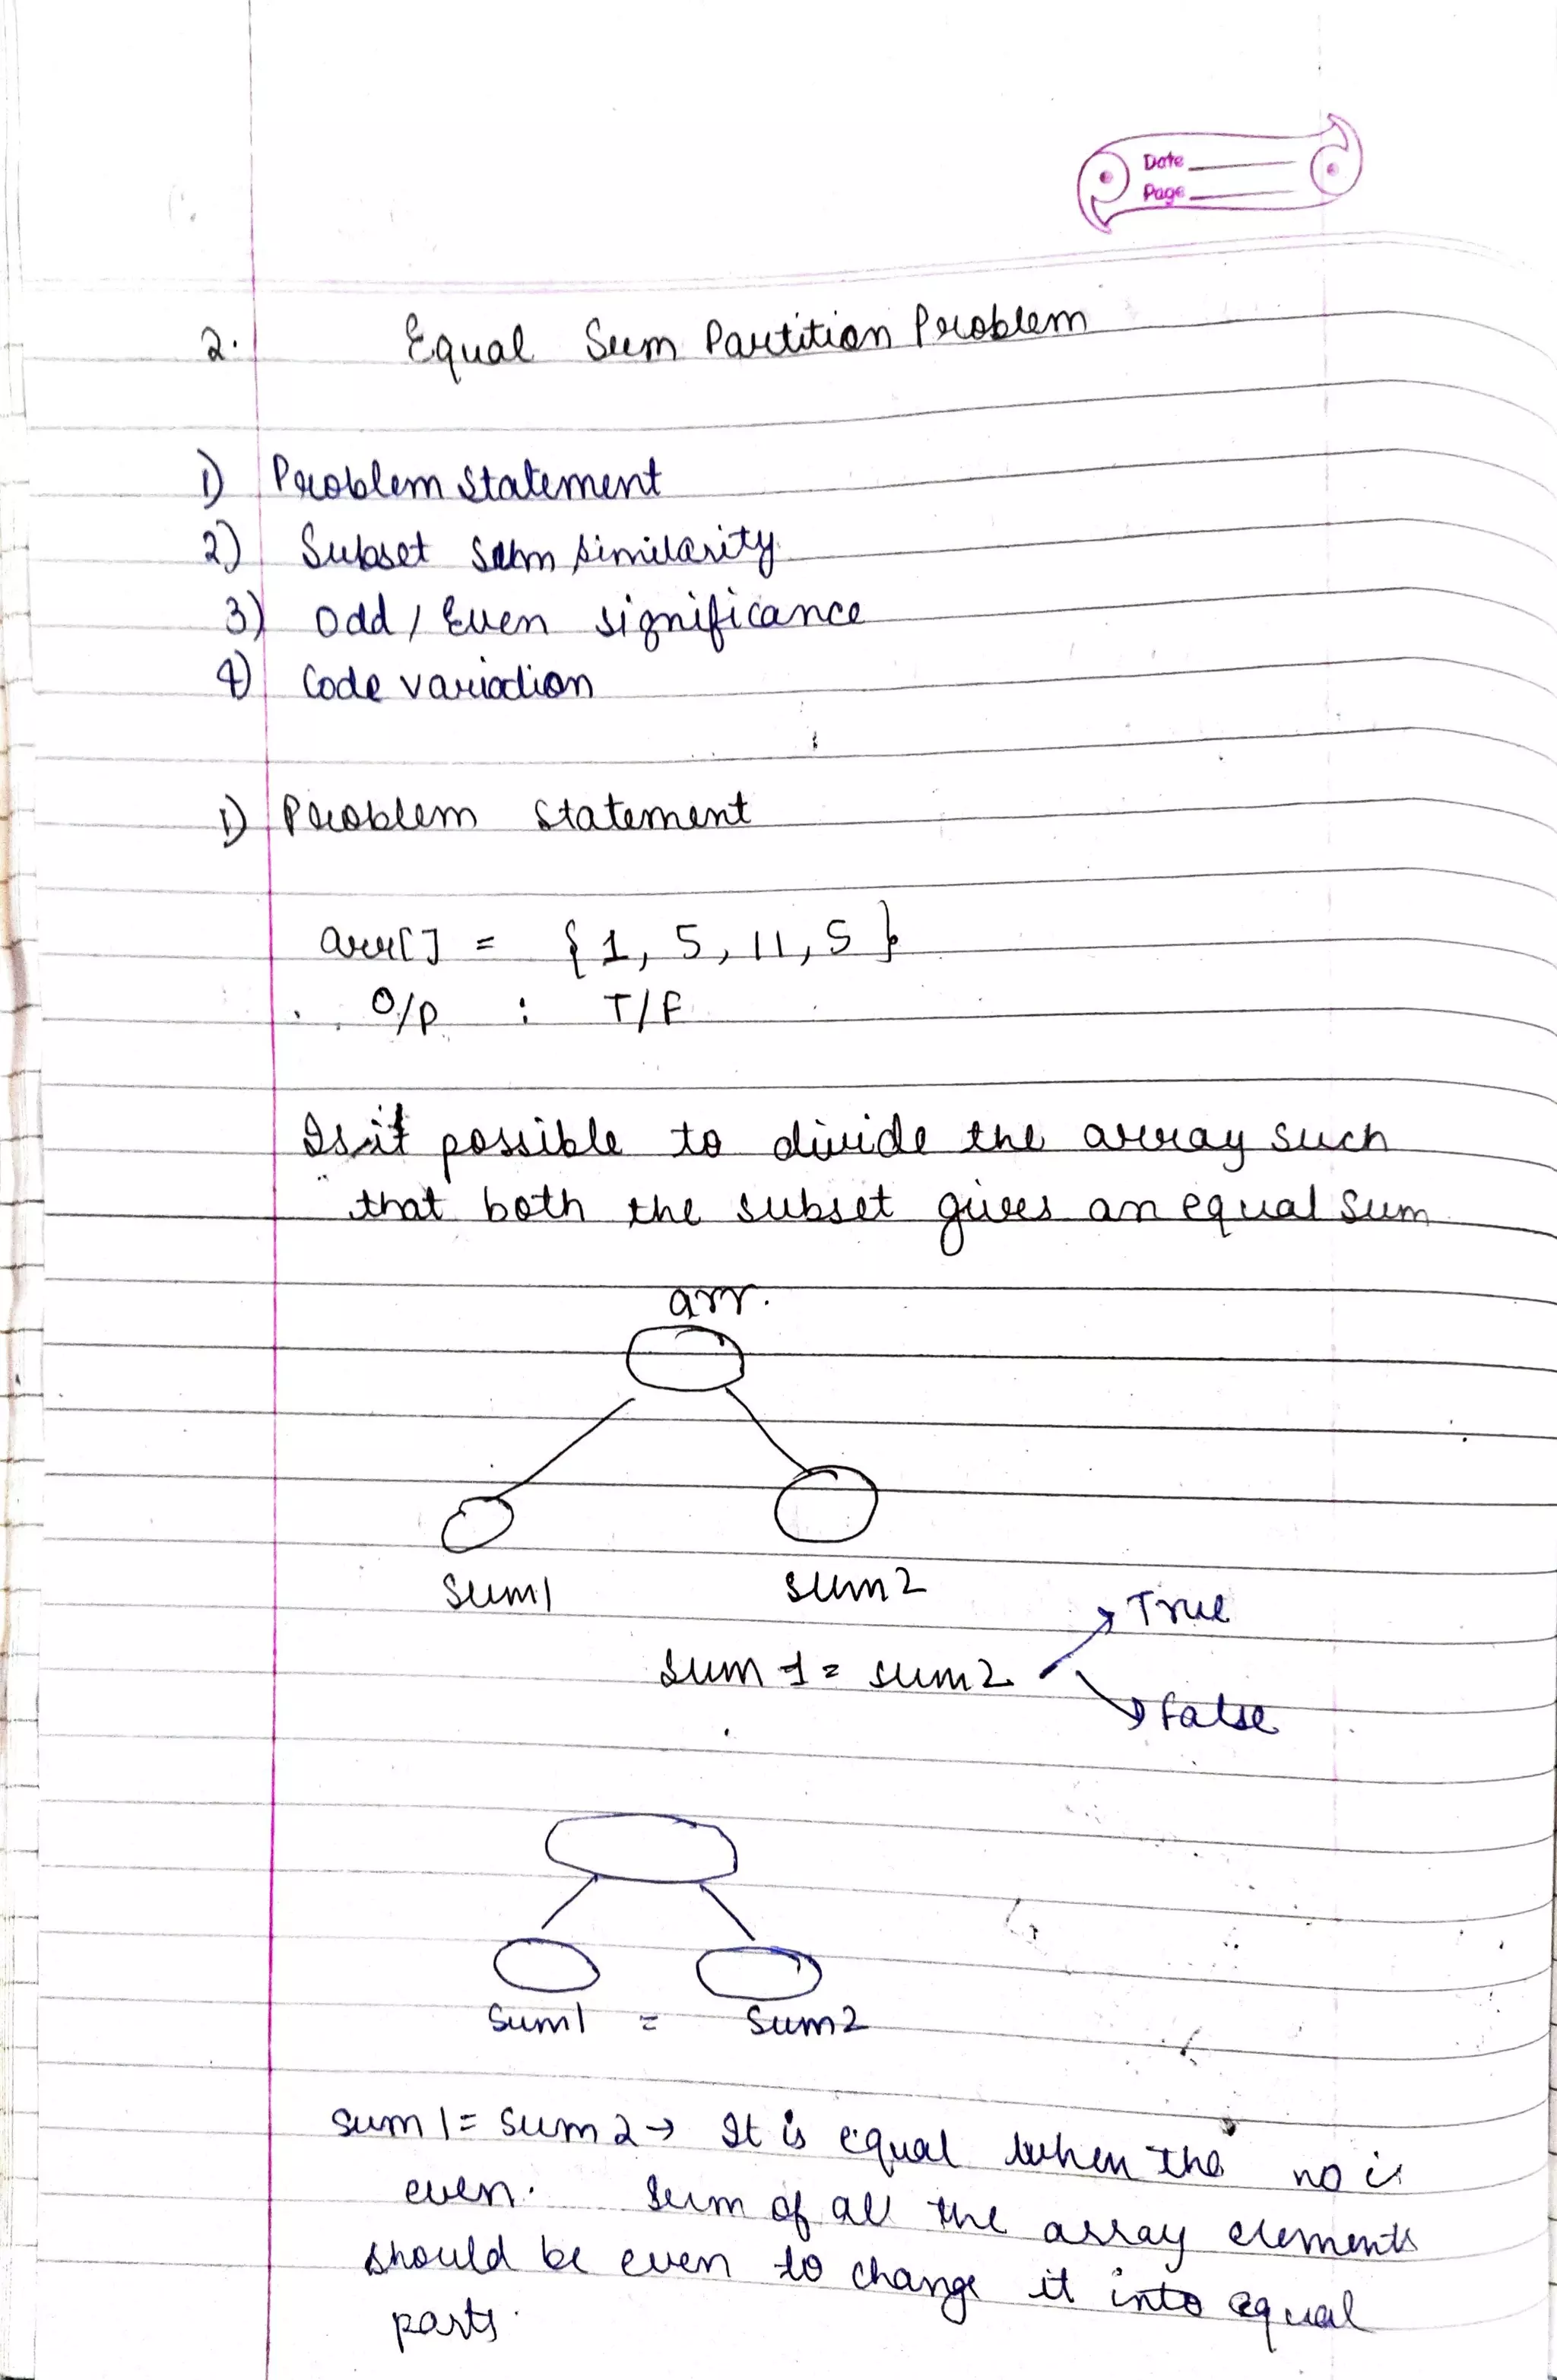 Date
Page
2. Equal Sum Partition Problem
1) Problem Statement
2) Subset Sum similarity
3) Odd / Even significance
4) Code variation
1) Problem Statement
arr[] = {1, 5, 11, 5}
O/P : T/F
Is it possible to divide the array such
that both the subset gives an equal sum
arr.
Sum1 sum2
True
sum 1 = sum2
False
Sum1 = Sum2
sum 1 = sum 2 → It is equal when the no is
even. Sum of all the array elements
should be even to change it into equal
parts.